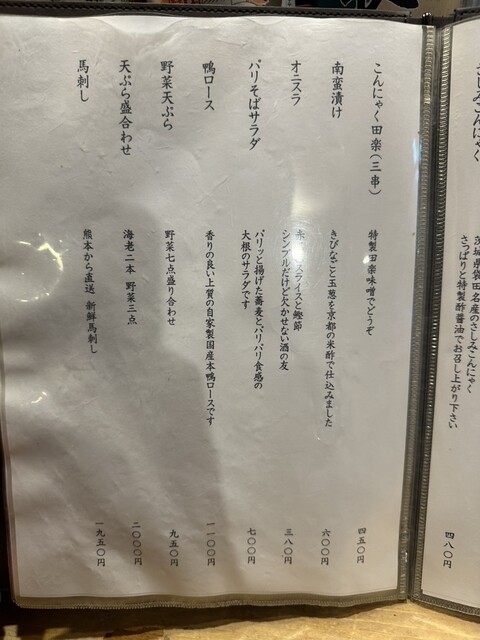 さしみこんにゃく
茨城県袋田名産のさしみこんにゃく
さっぱりと特製酢醤油でお召し上がり下さい
四八〇円
こんにゃく田楽(三串)
特製田楽味噌でどうぞ
四五〇円
南蛮漬け
きびなごと玉葱を京都の米酢で仕込みました
六〇〇円
オニスラ
スライスと鰹節
シンプルだけど欠かせない酒の友
三八〇円
パリそばサラダ
パリッと揚げた蕎麦とパリパリ食感の
大根のサラダです
七〇〇円
鴨ロース
香りの良い上質の自家製国産本鴨ロースです
一一〇〇円
野菜天ぷら
野菜七点盛り合わせ
九五〇円
天ぷら盛合わせ
海老二本 野菜三点
二〇〇〇円
馬刺し
熊本から直送 新鮮馬刺し
一九五〇円